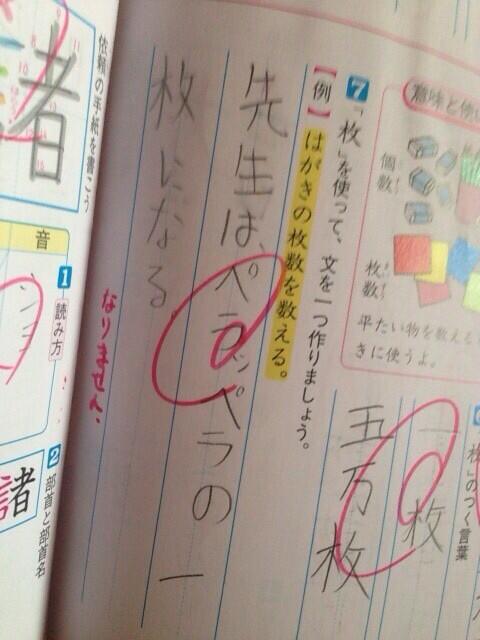 意味と使い
個数
枚数
平たい物を数える
きに使うよ。
「枚」のつく言葉
一枚
五万枚
7 「枚」を使って、文を一つ作りましょう。
【例】はがきの枚数を数える。
先生は、ペラッペラの一
枚になる。
なりません。
諸
依頼の手紙を書こう
音
1 読み方
2 部首と部首名
諸